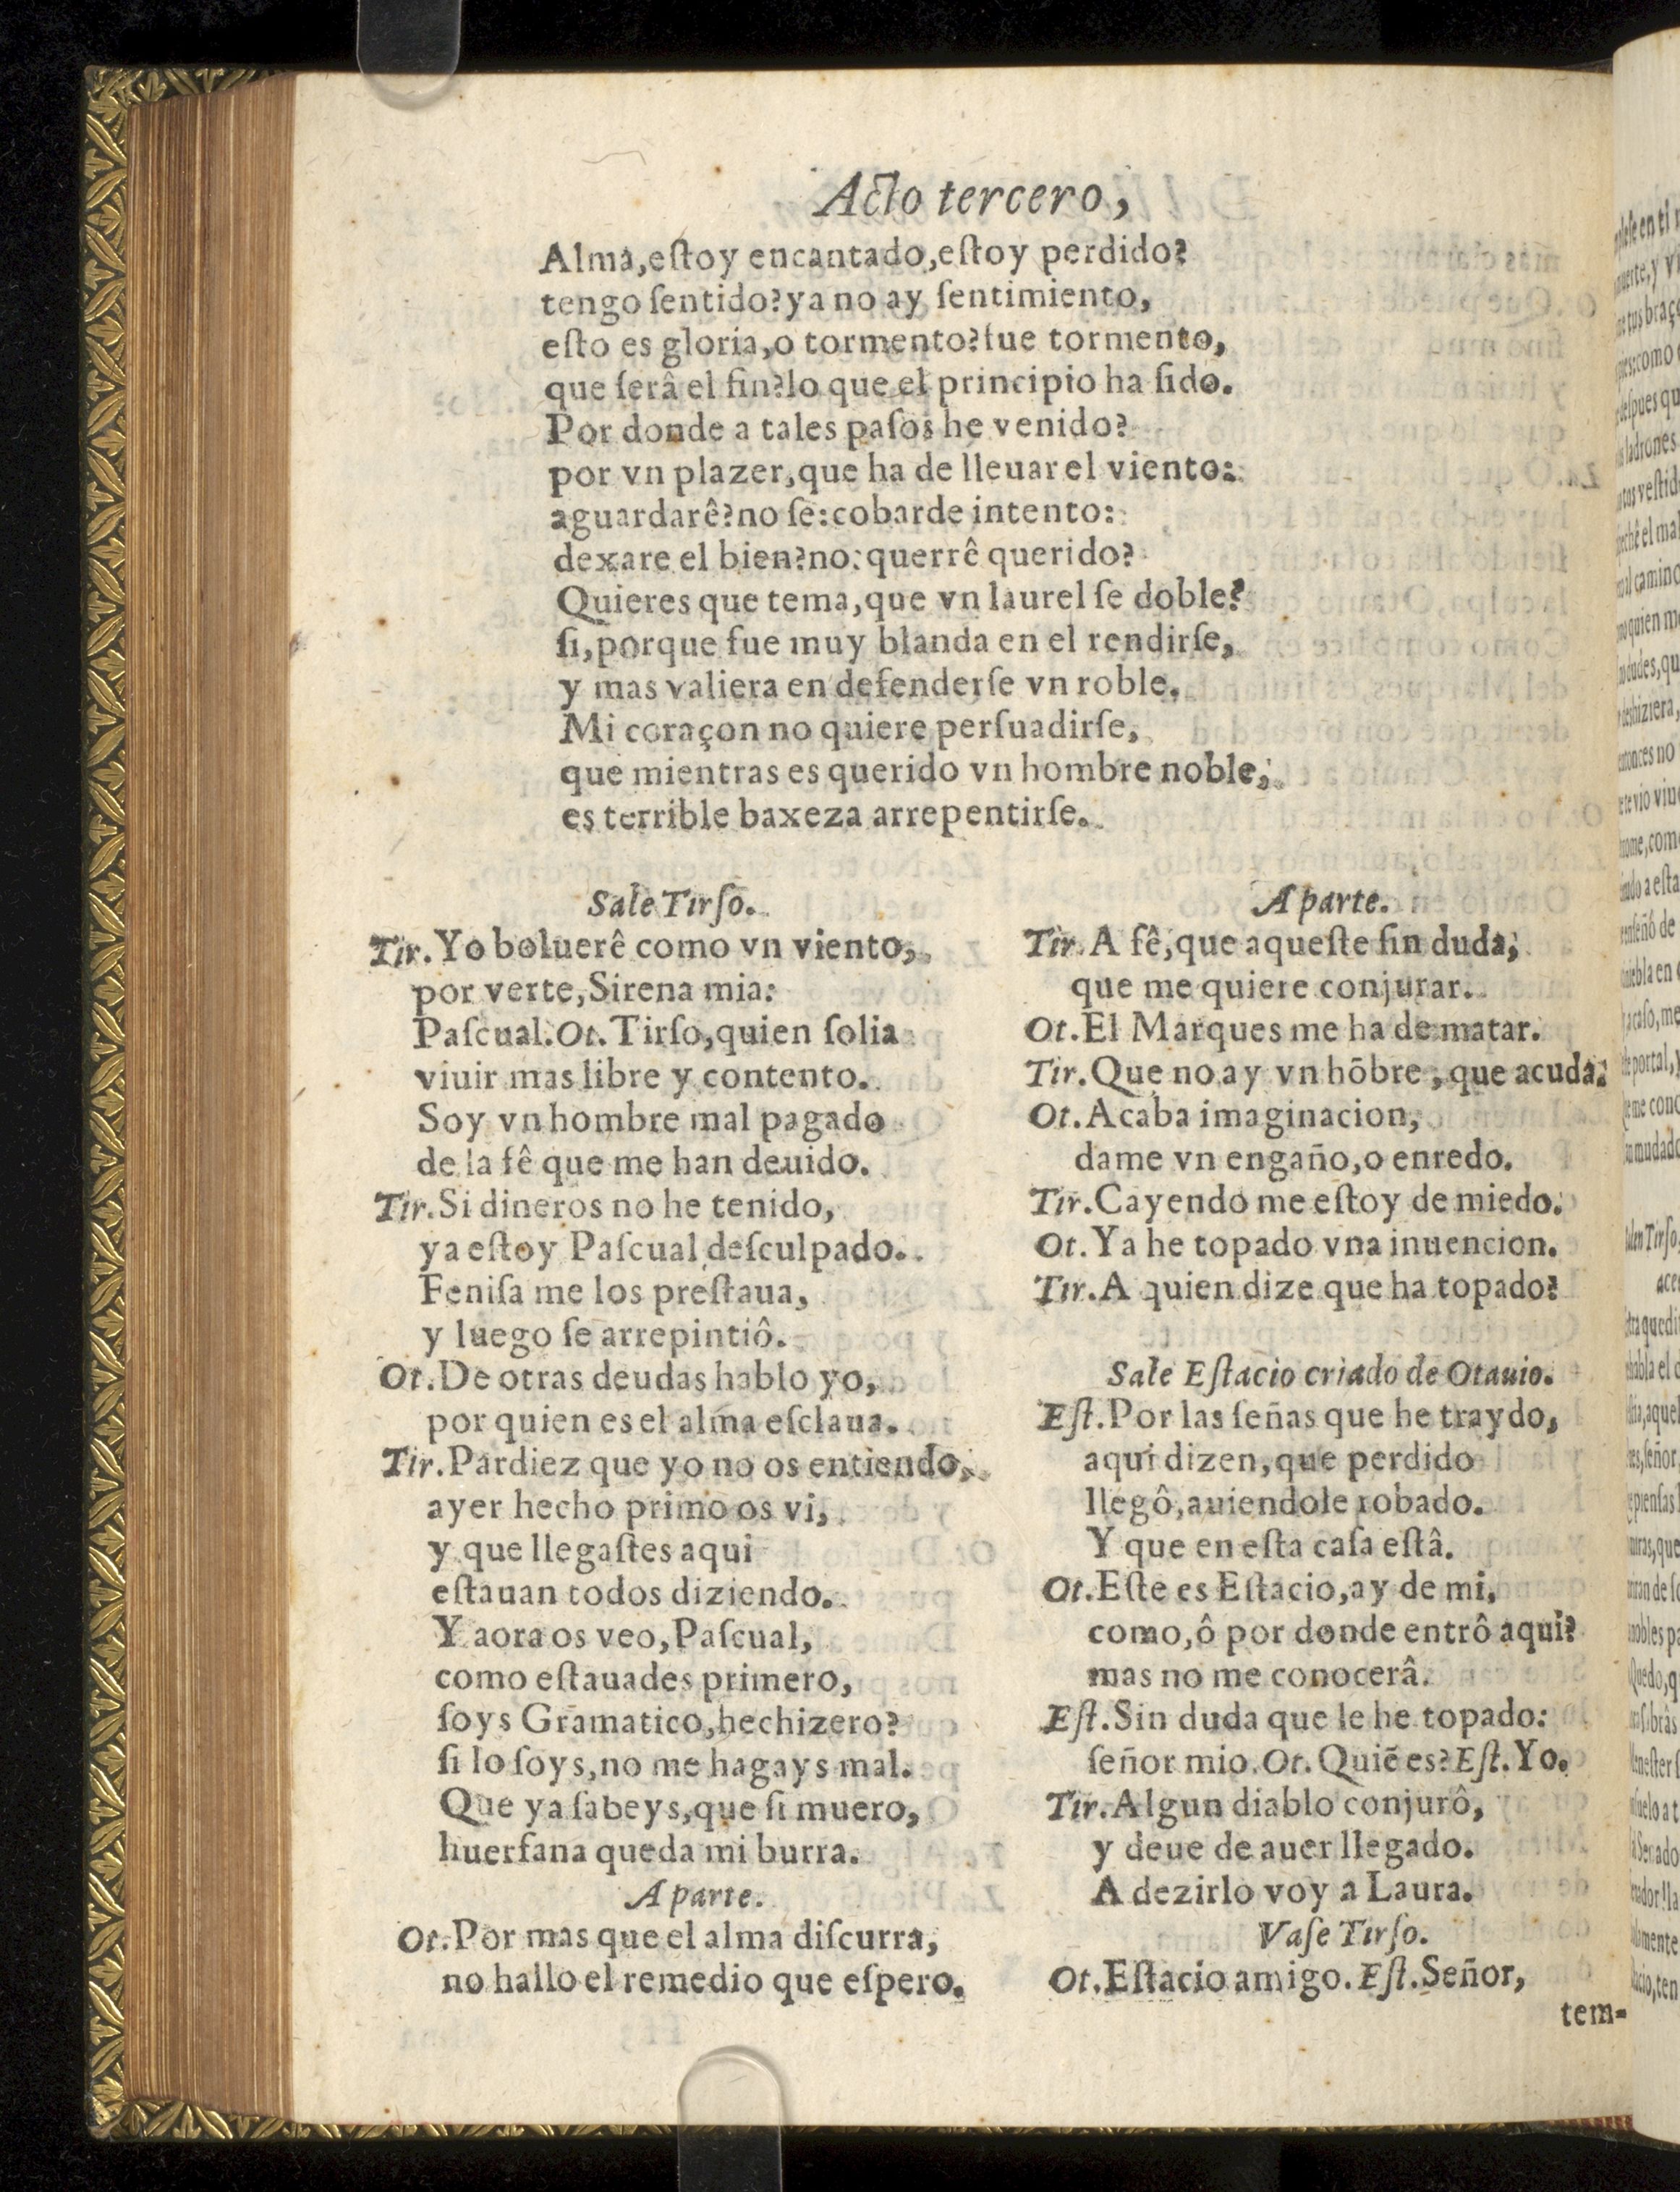 Acto tercero,
Alma,eſtoy encantado,eſtoy perdido?
tengo ſentido?ya no ay ſentimiento,
eſto es gloria,o tormento?fue tormento,
que ſerâ el fin?lo que el principio ha ſido.
Por donde a tales paſos he venido?
por vn plazer,que ha de lleuar el viento:
aguardarê?no ſe:cobarde intento:
dexare el bien?no:querrê querido?
Quieres que tema,que vn laurel ſe doble?
ſi,porque fue muy blanda en el rendirſe,
y mas valiera en defenderſe vn roble.
Mi coraçon no quiere perſuadirſe,
que mientras es querido vn hombre noble,
es terrible baxeza arrepentirſe.
Sale Tirſo.
Tir.Yo boluerê como vn viento,
por verte,Sirena mia:
Paſcual.Ot.Tirſo,quien ſolia
viuir mas libre y contento.
Soy vn hombre mal pagado
de la fê que me han deuido.
Tir.Si dineros no he tenido,
ya eſtoy Paſcual deſculpado.
Feniſa me los preſtaua,
y luego ſe arrepintiô.
Ot.De otras deudas hablo yo,
por quien es el alma eſclaua.
Tir.Pardiez que yo no os entiendo,
ayer hecho primo os vi,
y que llegaſtes aqui
eſtauan todos diziendo.
Y aora os veo,Paſcual,
como eſtauades primero,
ſoys Gramatico,hechizero?
ſi lo ſoys,no me hagays mal.
Que ya ſabeys,que ſi muero,
huerfana queda mi burra.
A parte.
Ot.Por mas que el alma diſcurra,
no hallo el remedio que eſpero.
A parte.
Tir.A fê,que aqueſte ſin duda,
que me quiere conjurar.
Ot.El Marques me ha de matar.
Tir.Que no ay vn hōbre,que acuda.
Ot.Acaba imaginacion,
dame vn engaño,o enredo.
Tir.Cayendo me eſtoy de miedo.
Ot.Ya he topado vna inuencion.
Tir.A quien dize que ha topado?
Sale Eſtacio criado de Otauio.
Eſt.Por las ſeñas que he traydo,
aqui dizen,que perdido
llegô,auiendole robado.
Y que en eſta caſa eſtâ.
Ot.Eſte es Eſtacio,ay de mi,
como,ô por donde entrô aqui?
mas no me conocerâ.
Eſt.Sin duda que le he topado:
ſeñor mio.Ot.Quiē es?Eſt.Yo.
Tir.Algun diablo conjurô,
y deue de auer llegado.
A dezirlo voy a Laura.
Vaſe Tirſo.
Ot.Eſtacio amigo.Eſt.Señor,
tem-